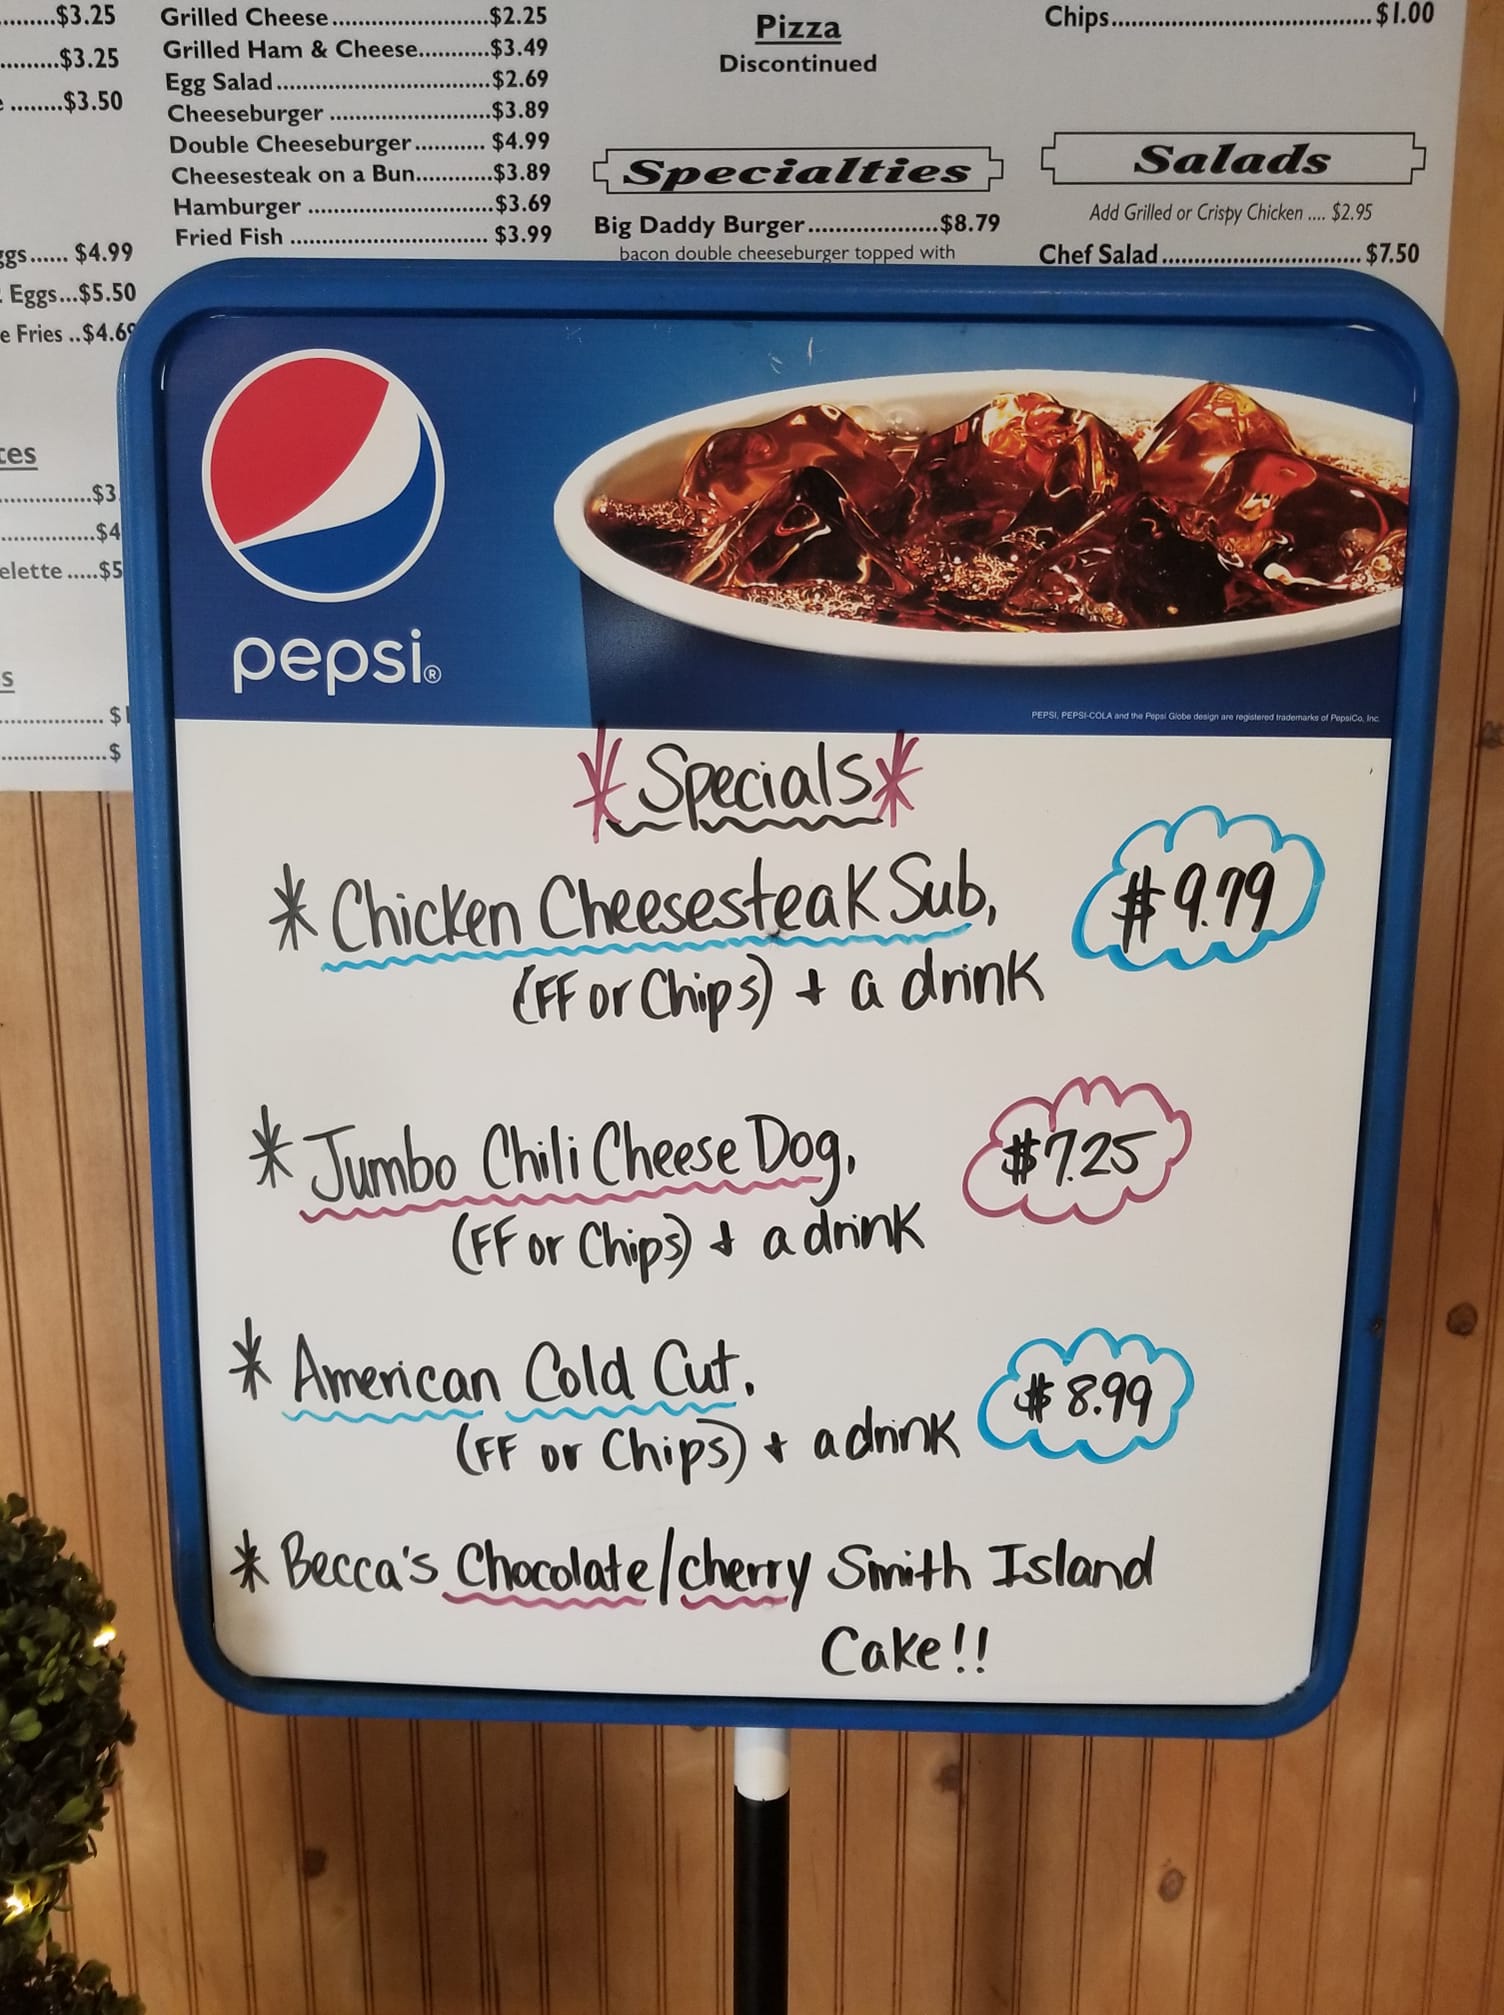 $3.25
$3.25
$3.50
$4.99
Eggs...$5.50
Fries ..$4.69
$3
$4
$5
$1
$
Grilled Cheese.......................$2.25
Grilled Ham & Cheese...........$3.49
Egg Salad................................$2.69
Cheeseburger ........................$3.89
Double Cheeseburger........... $4.99
Cheesesteak on a Bun...........$3.89
Hamburger ............................$3.69
Fried Fish .............................. $3.99
Pizza
Discontinued
Specialties
Big Daddy Burger....................$8.79
bacon double cheeseburger topped with
Chips.......................................$1.00
Salads
Add Grilled or Crispy Chicken .... $2.95
Chef Salad.............................. $7.50
pepsi®
PEPSI, PEPSI-COLA and the Pepsi Globe design are registered trademarks of PepsiCo, Inc.
*Specials*
* Chicken Cheesesteak Sub, $9.79
(FF or Chips) + a drink
* Jumbo Chili Cheese Dog, $7.25
(FF or Chips) + a drink
* American Cold Cut, $8.99
(FF or Chips) + a drink
* Becca's Chocolate/cherry Smith Island
Cake!!